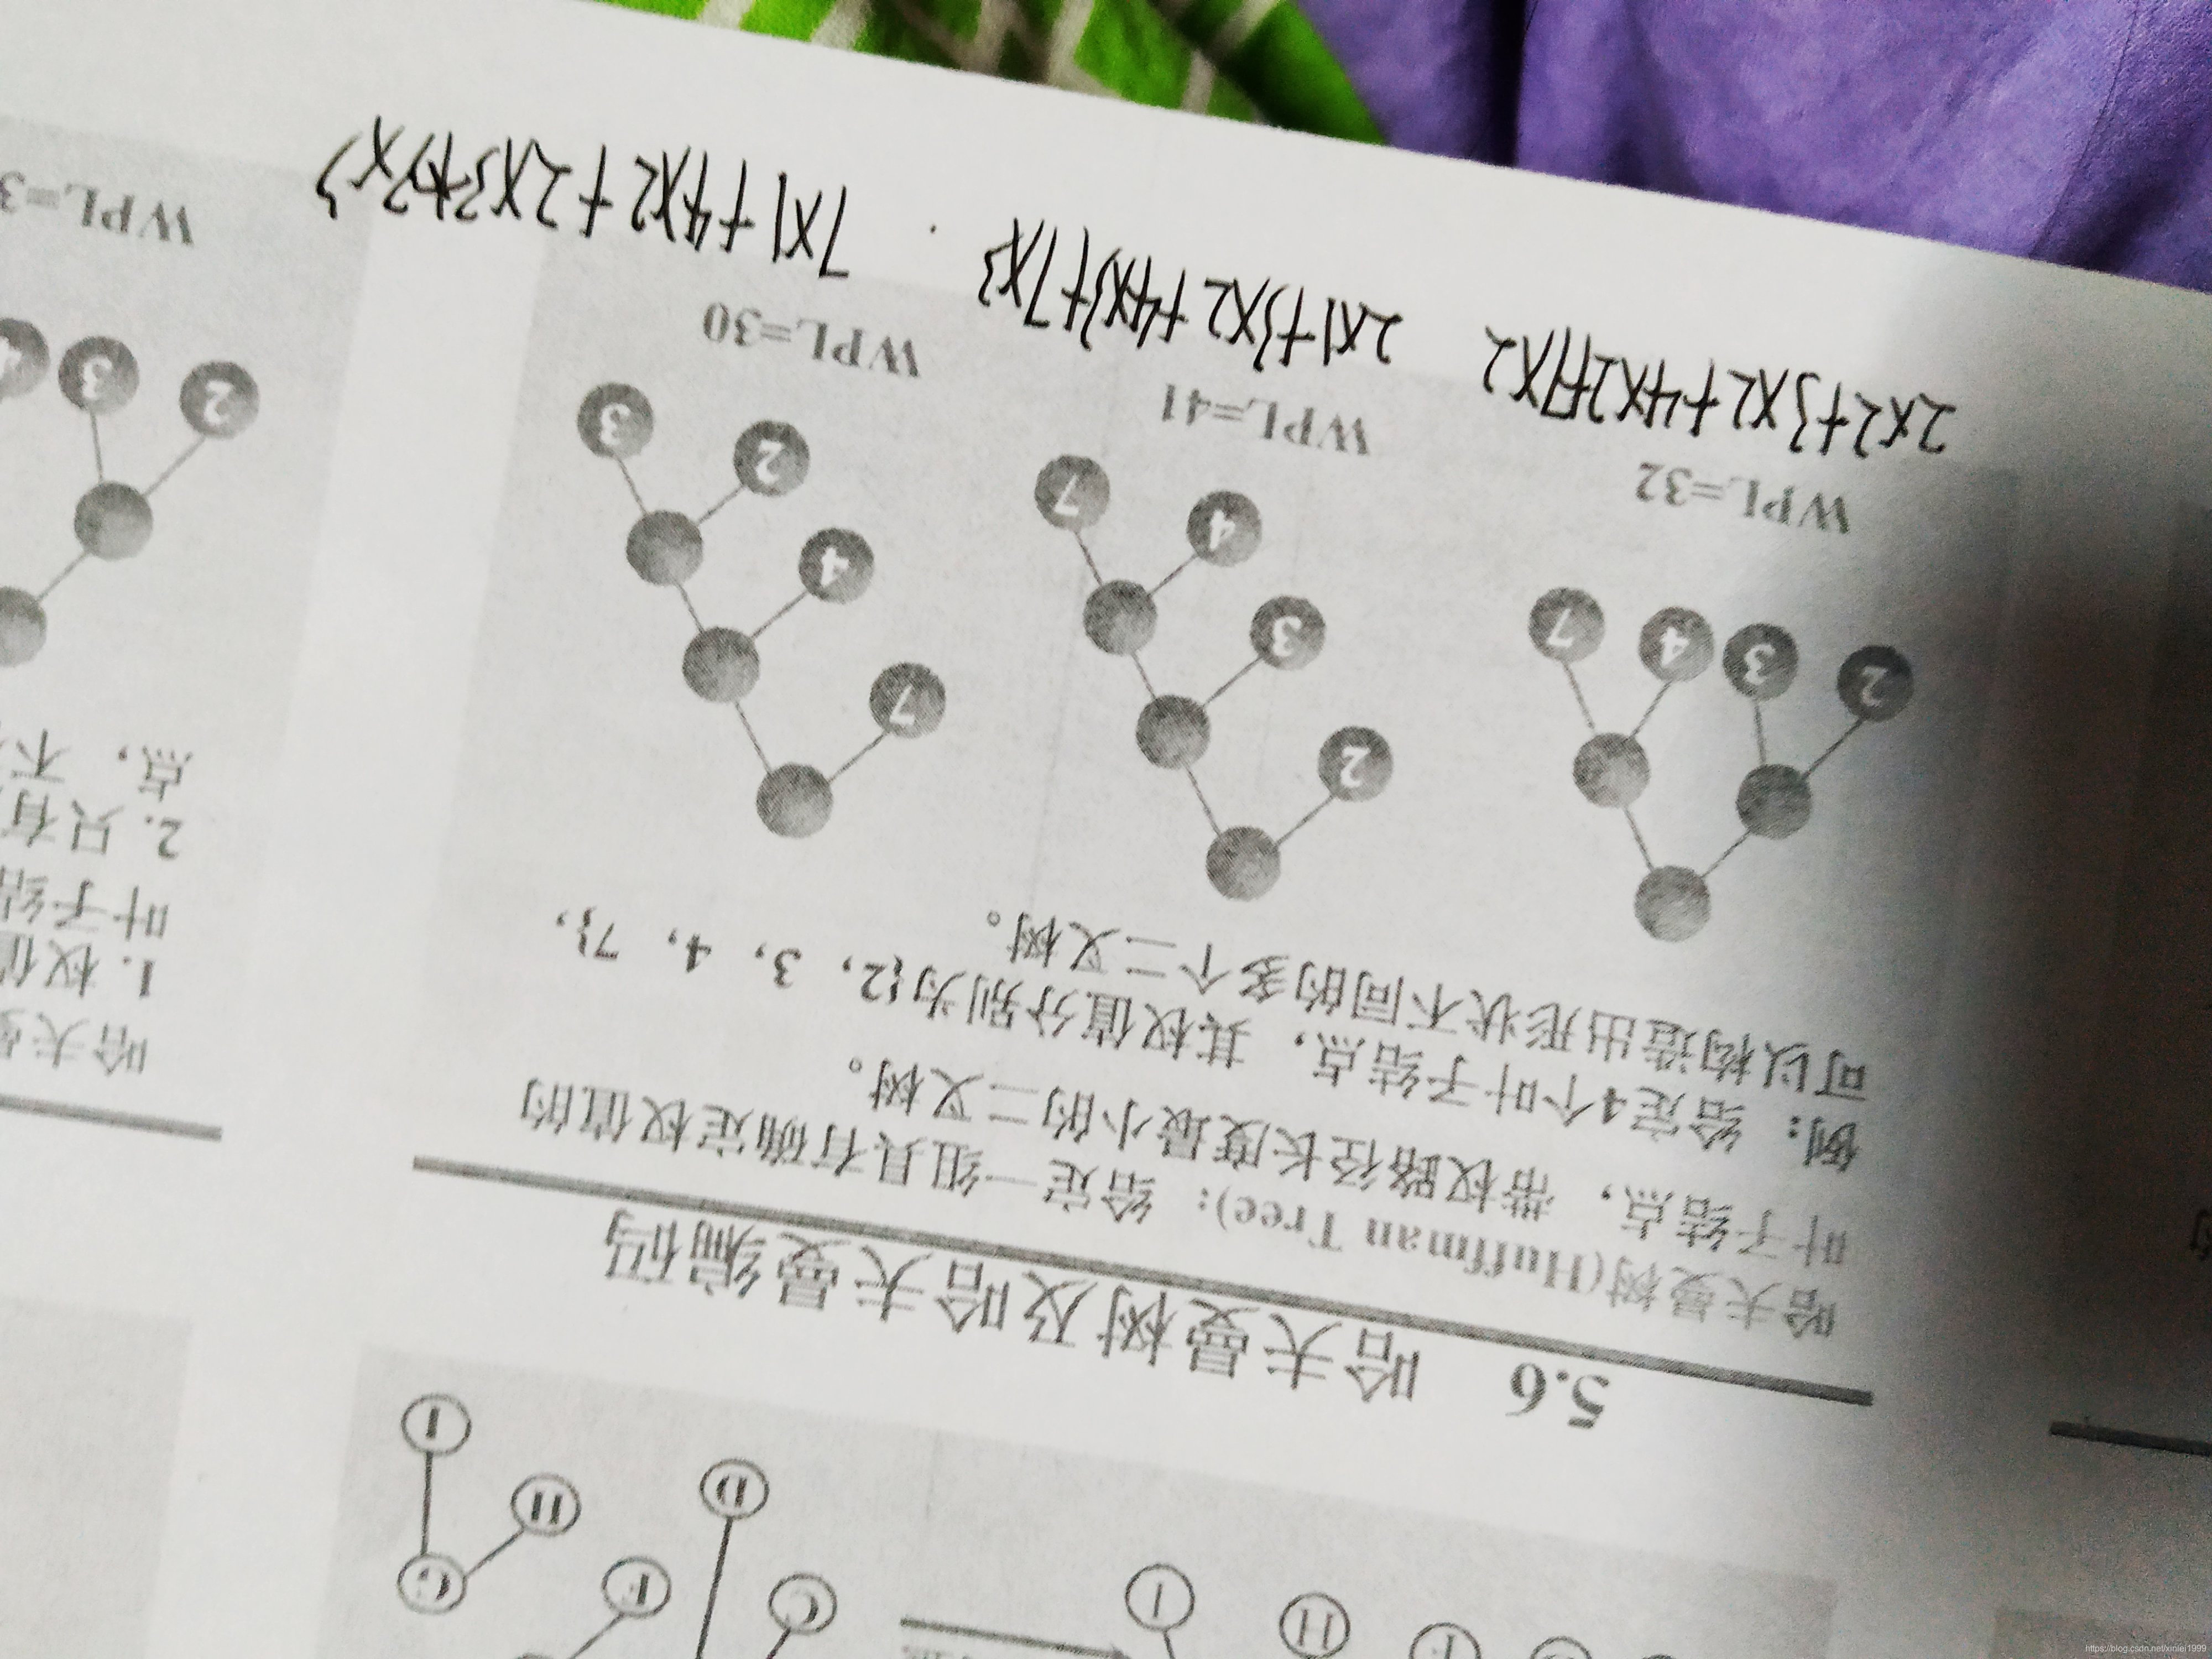 5.6 哈夫曼树及哈夫曼编码
哈夫曼树(Huffman Tree)：给定一组具有确定权值的
叶子结点，带权路径长度最小的二叉树。
例：给定4个叶子结点，其权值分别为{2，3，4，7}，
可以构造出形状不同的多个二叉树。
2 3 4 7
WPL=32
2 3 4 7
WPL=41
7 4 2 3
WPL=30
2x2+3x2+4x2+7x2
2x1+3x2+4x3+7x3
7x1+4x2+2x3+3x3
哈夫
1. 权值
叶子结
2. 只有
点，不
2 3 4
WPL=3
I H G F D C
I H
https://blog.csdn.net/xinlei1999